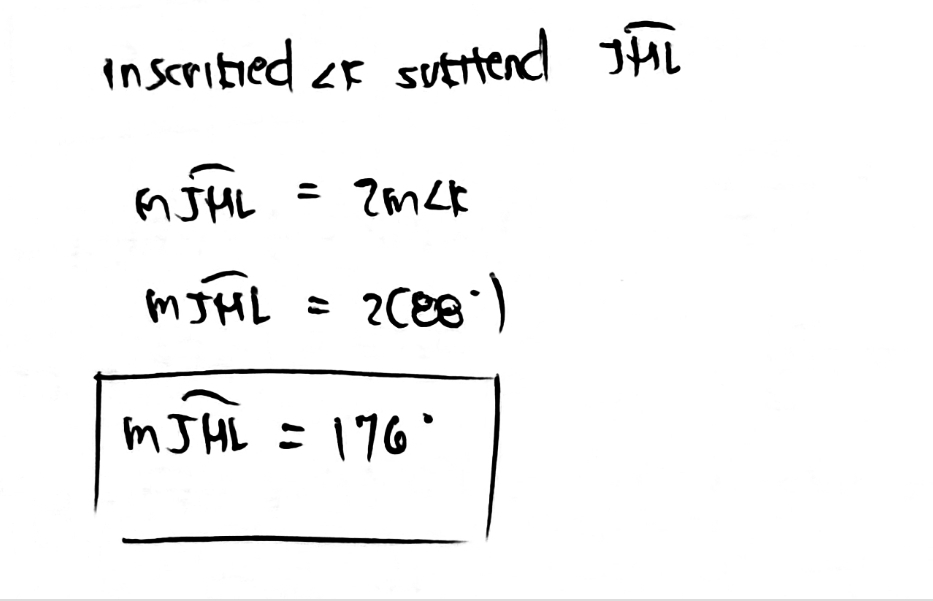 inscribed ∠K subtend J͡HL
m J͡HL = 2m∠K
m J͡HL = 2(88°)
m J͡HL = 176°